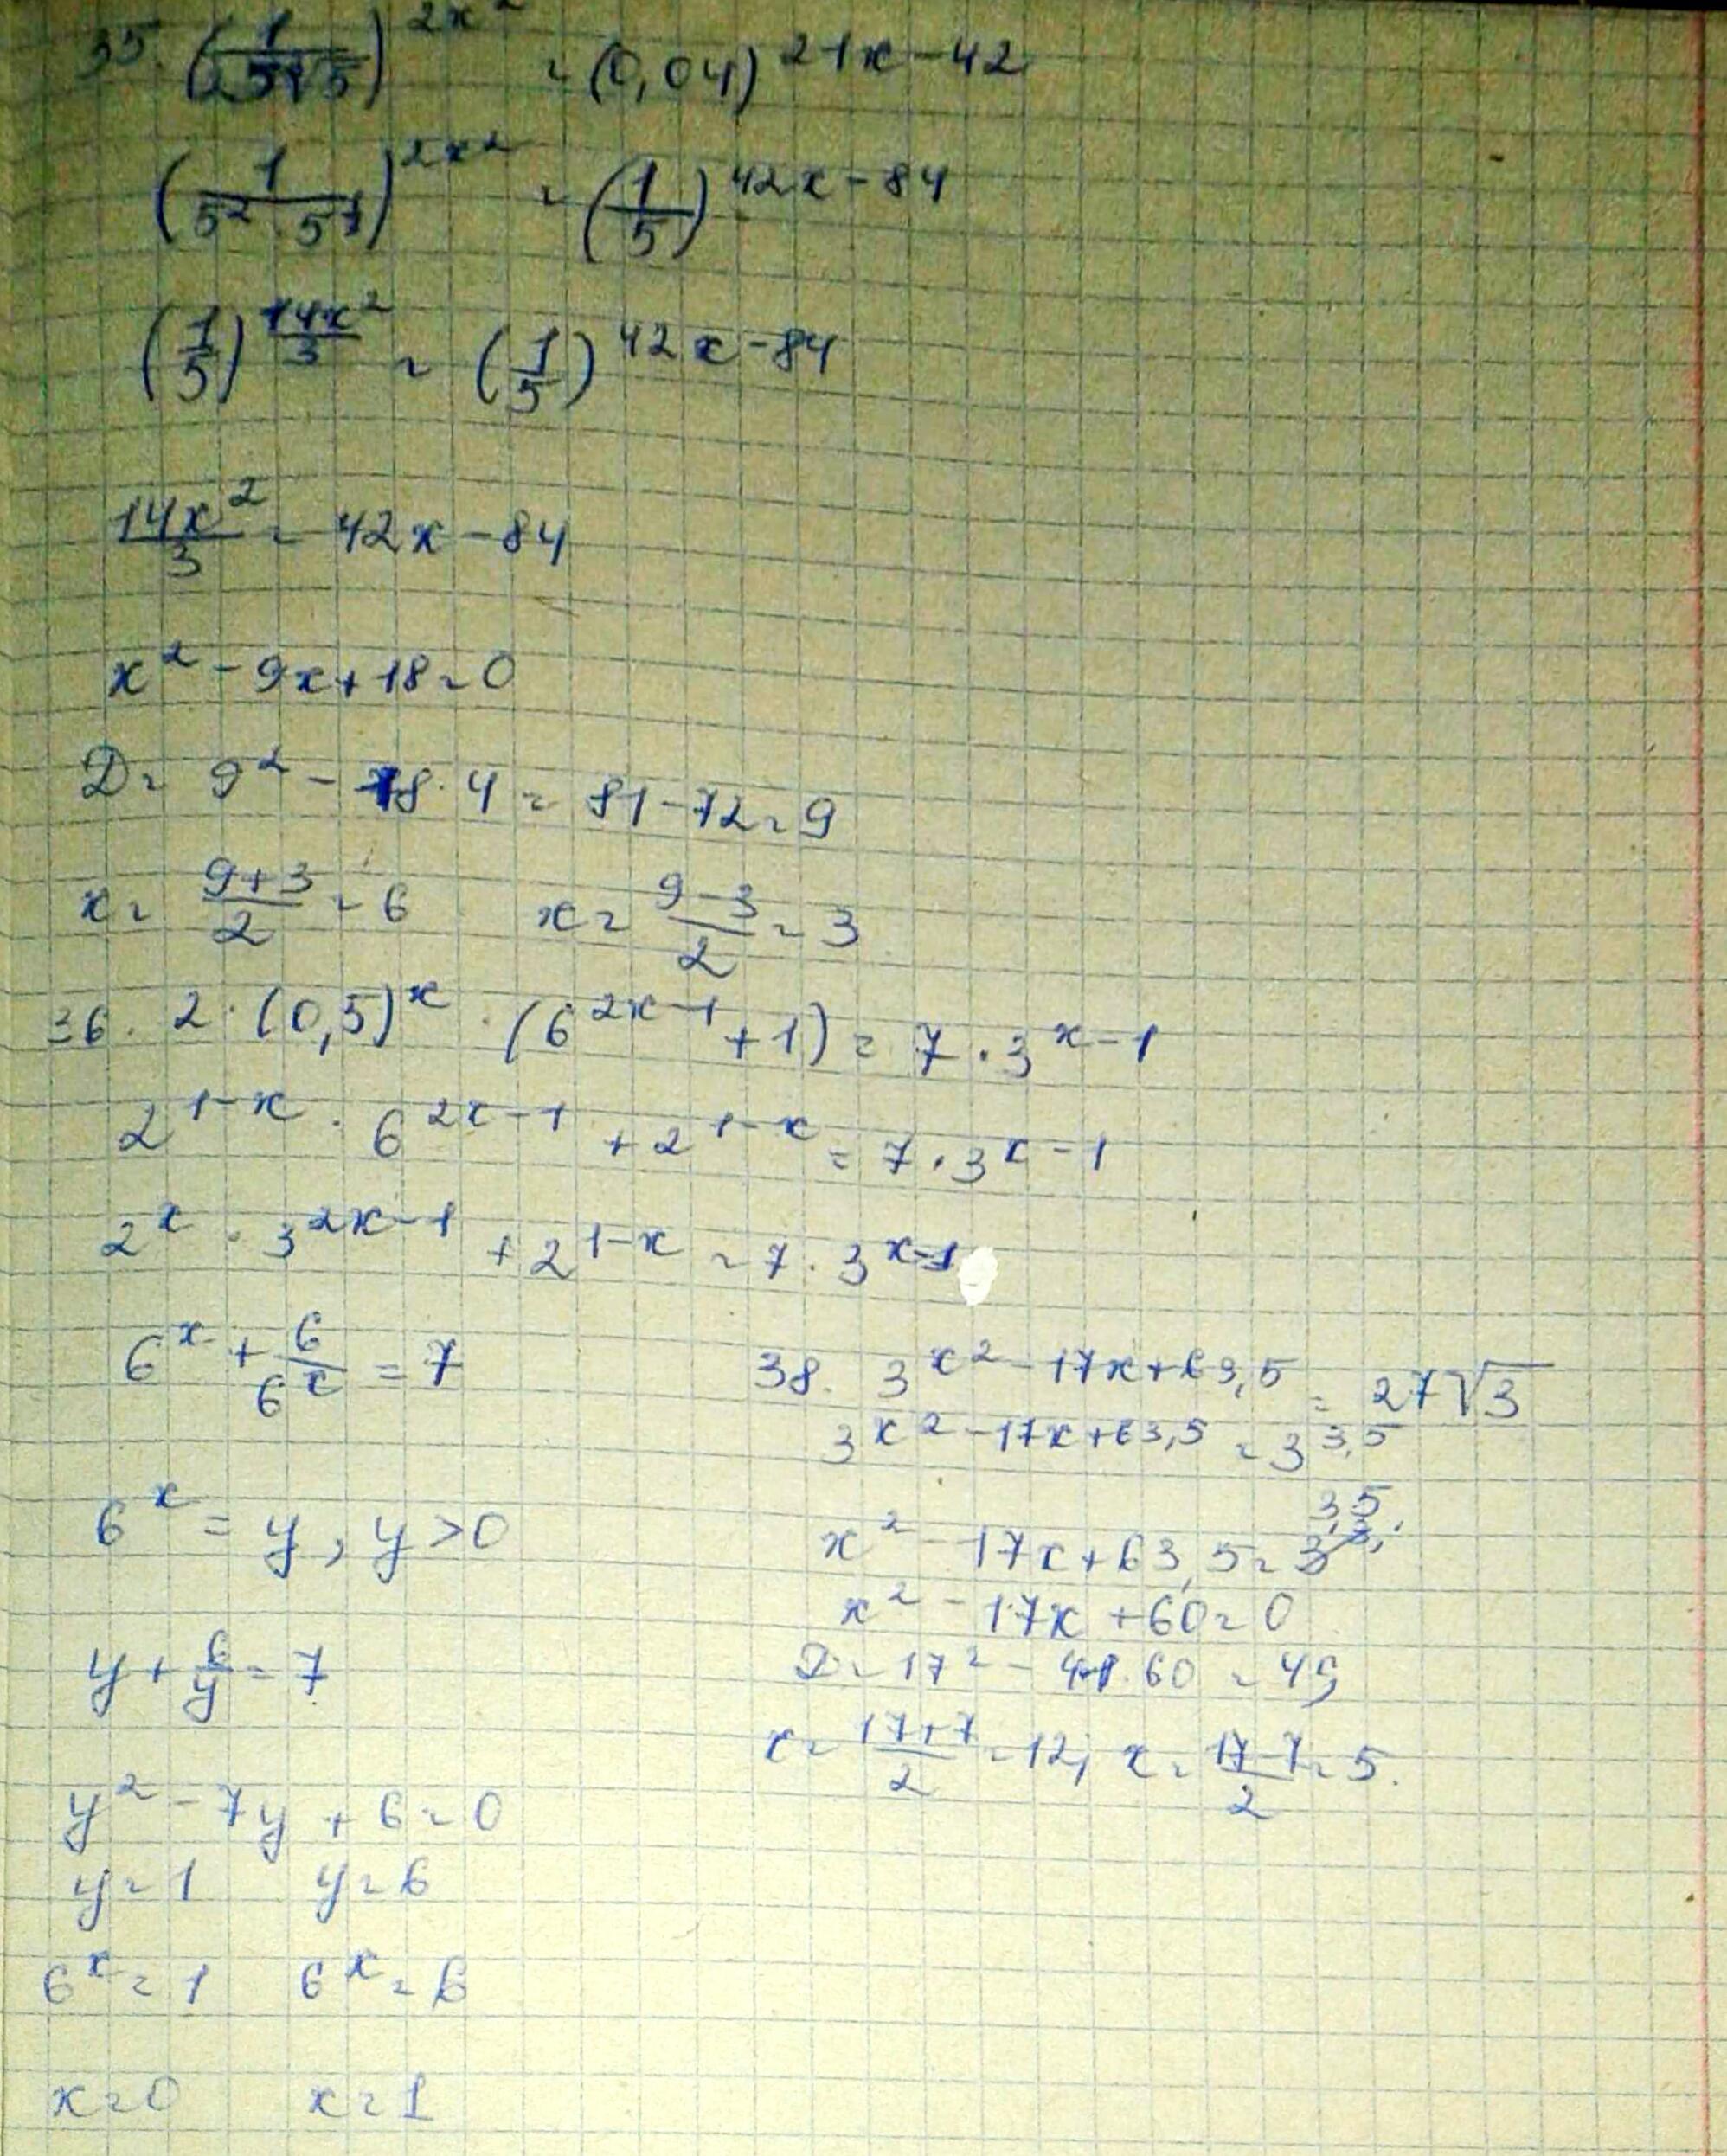 35. (1/(25∛5))^(2x²) = (0,04)^(21x-42)
(1/(5² · 5^1))^(2x²) = (1/5)^(42x-84)
(1/5)^(14x²/3) = (1/5)^(42x-84)
14x²/3 = 42x-84
x² - 9x + 18 = 0
D = 9² - 18 · 4 = 81 - 72 = 9
x = (9+3)/2 = 6 x = (9-3)/2 = 3
36. 2 · (0,5)^x · (6^(2x-1) + 1) = 7 · 3^(x-1)
2^(1-x) · 6^(2x-1) + 2^(1-x) = 7 · 3^(x-1)
2^x · 3^(2x-1) + 2^(1-x) = 7 · 3^(x-1)
6^x + 6/6^x = 7
6^x = y, y > 0
y + 6/y = 7
y² - 7y + 6 = 0
y = 1 y = 6
6^x = 1 6^x = 6
x = 0 x = 1
38. 3^(x² - 17x + 63,5) = 27√3
3^(x² - 17x + 63,5) = 3^(3,5)
x² - 17x + 63,5 = 3,5
x² - 17x + 60 = 0
D = 17² - 4 · 60 = 49
x = (17+7)/2 = 12; x = (17-7)/2 = 5.